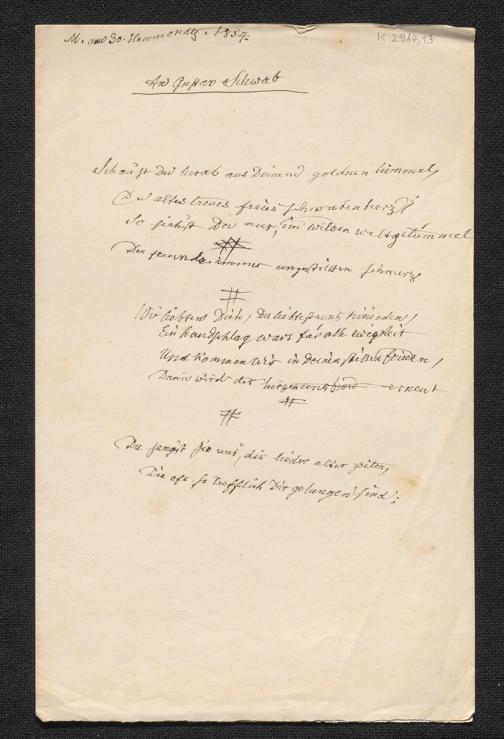 M. am 30. Heumonds. 1857.
K 2917,13
An Gustav Schwab
Schaust Du herab aus Deinem goldnen himmel,
Du altes treues freies schwabenherz!
So siehst Du nur, im wilden weltgetümmel
Der freunde immer ungestillten schmerz
Wir liebten Dich, Du liebtest uns hinieden,
Ein handschlag wars für alle ewigkeit
Und kommen wir in Deinen stillen frieden,
Dann wird der herzensbund erneut
Du sangst sie uns, die lieder alter zeiten,
Die oft so trefflich Dir gelungen sind;